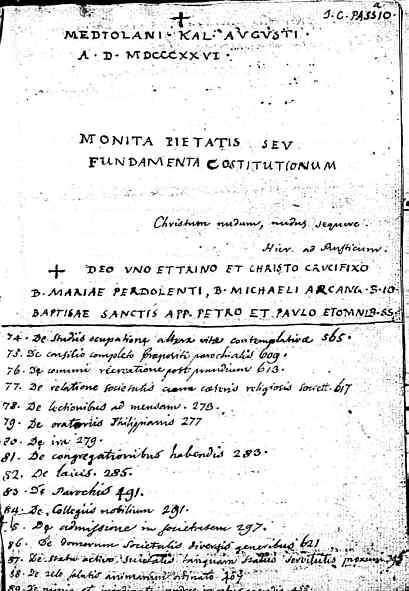 J. C. PASSIO.
MEDIOLANI· KAL· AVGVSTI·
A · D · MDCCCXXVI ·
MONITA PIETATIS SEV
FUNDAMENTA COSTITUTIONUM
Christum nudum, nudus sequere.
Hier. ad Rusticum.
DEO VNO ET TRINO ET CHRISTO CRUCIFIXO
B. MARIAE PERDOLENTI, B. MICHAELI ARCANG. S. IO.
BAPTISAE SANCTIS APP. PETRO ET PAVLO ET OMNIB. SS.
74. De Studiis vitae contemplativae 565.
75. De consilio completo Praepositi parochialis 609.
76. De communi recreatione post prandium 613.
77. De relatione societatis cum caeteris religiosis societ. 617
78. De lectionibus ad mensam. 273.
79. De oratoriis Philippianis 277
80. De 279.
81. De congregationibus habendis 283.
82. De laicis. 285.
83. De Parochis 491.
84. De Collegiis nobilium 291.
85. De admissione in societatem 297.
86. De domorum Societatis diversis generibus 621
87. De statu activo Societatis tanquam status servitutis
88. De zelo salutis animarum ordinato 403
89. De